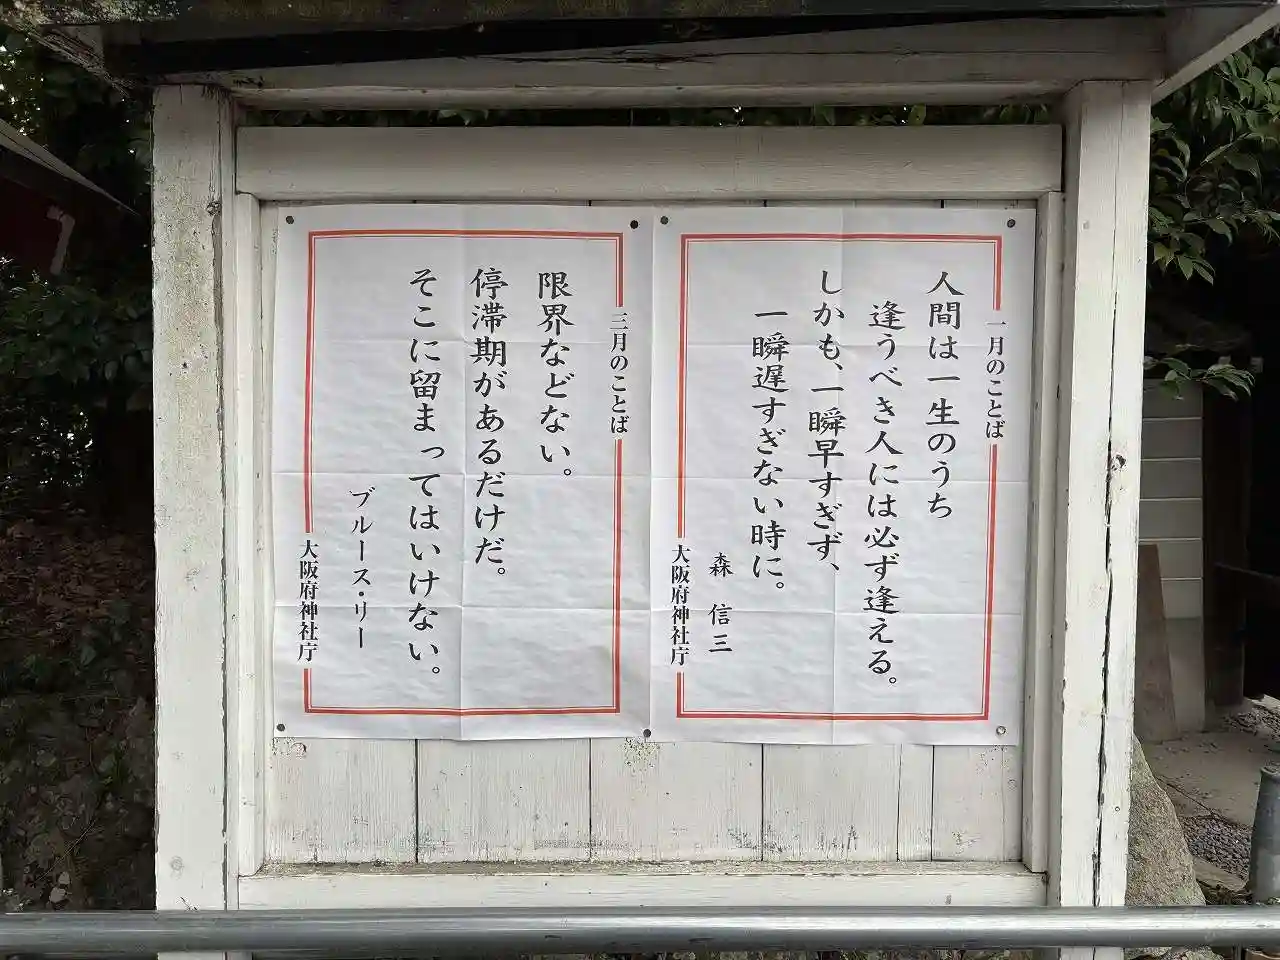 一月のことば
人間は一生のうち
逢うべき人には必ず逢える。
しかも、一瞬早すぎず、
一瞬遅すぎない時に。
森 信三
大阪府神社庁
三月のことば
限界などない。
停滞期があるだけだ。
そこに留まってはいけない。
ブルース・リー
大阪府神社庁